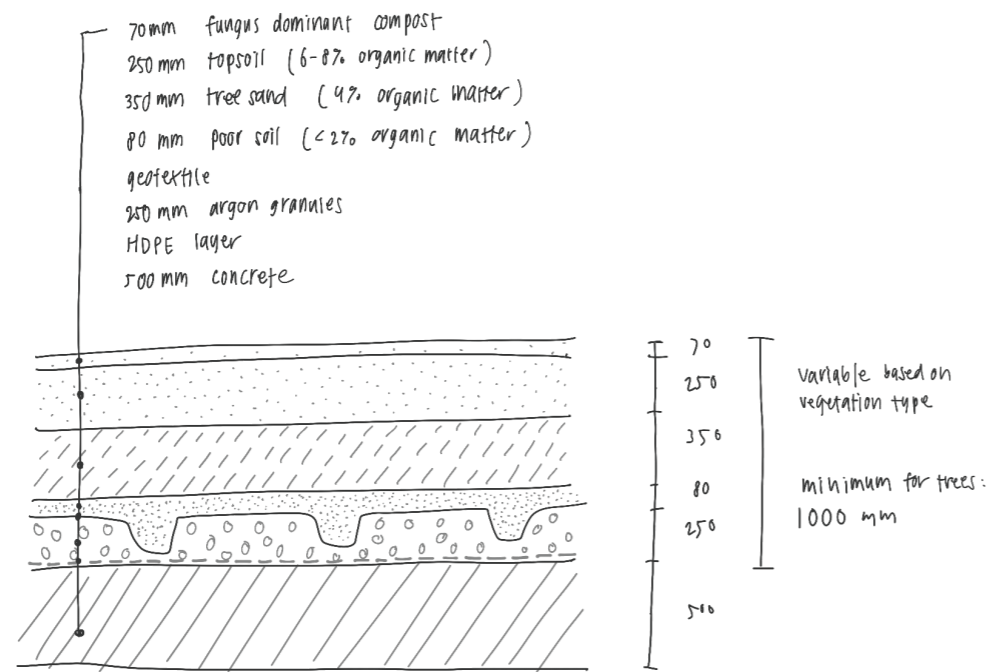 70mm fungus dominant compost
250 mm topsoil (6-8% organic matter)
350 mm tree sand (4% organic matter)
80 mm poor soil (<2% organic matter)
geotextile
250 mm argon granules
HDPE layer
500 mm concrete
70
250
350
80
250
500
variable based on
vegetation type
minimum for trees:
1000 mm